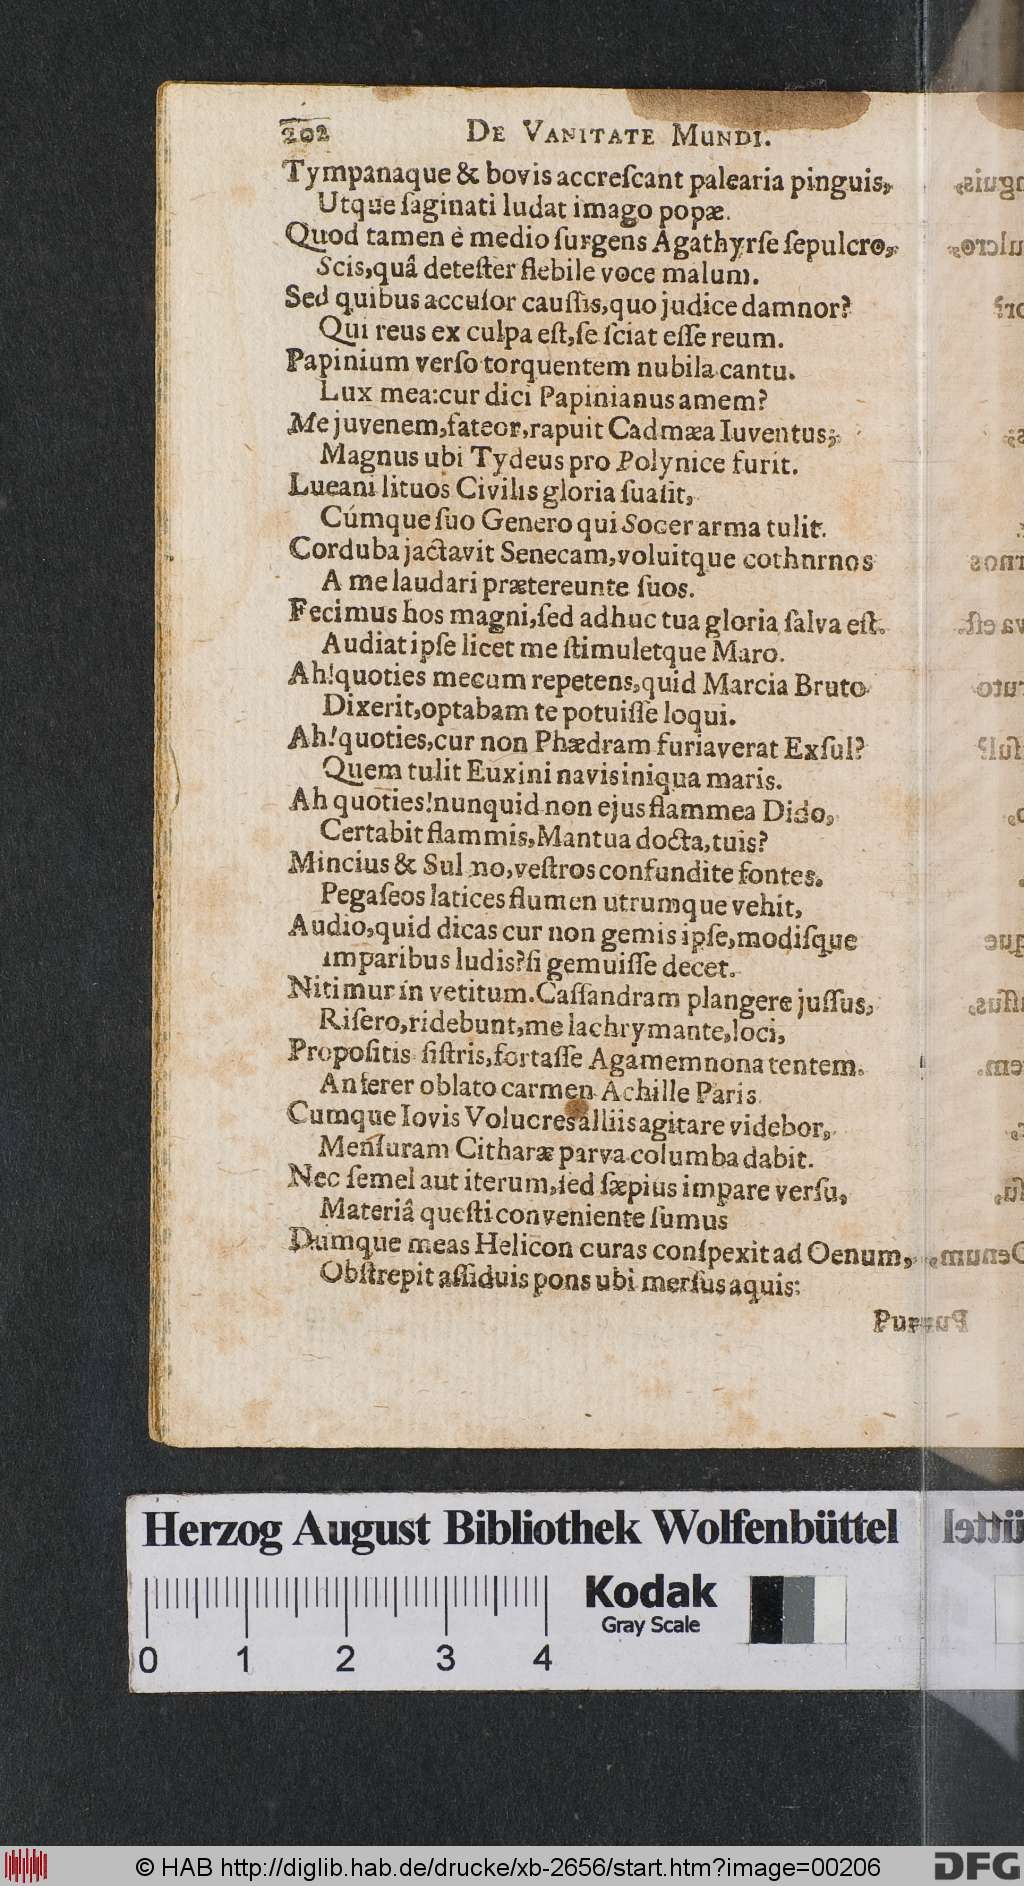 202 DE VANITATE MUNDI.
Tympanaque & bovis accreſcant palearia pinguis,
Utque ſaginati ludat imago popæ.
Quod tamen è medio ſurgens Agathyrſe ſepulcro,
Scis,quâ deteſter flebile voce malum.
Sed quibus accuſor cauſſis,quo judice damnor?
Qui reus ex culpa eſt,ſe ſciat eſſe reum.
Papinium verſo torquentem nubila cantu.
Lux mea:cur dici Papinianus amem?
Me juvenem,fateor,rapuit Cadmæa Iuventus;
Magnus ubi Tydeus pro Polynice furit.
Lueani lituos Civilis gloria ſuaſit,
Cúmque ſuo Genero qui Socer arma tulit.
Corduba jactavit Senecam,voluitque cothnrnos
A me laudari prætereunte ſuos.
Fecimus hos magni,ſed adhuc tua gloria ſalva eſt.
Audiat ipſe licet me ſtimuletque Maro.
Ah!quoties mecum repetens,quid Marcia Bruto
Dixerit,optabam te potuiſſe loqui.
Ah!quoties,cur non Phædram furiaverat Exſul?
Quem tulit Euxini navis iniqua maris.
Ah quoties!nunquid non ejus flammea Dido,
Certabit flammis,Mantua docta,tuis?
Mincius & Sul no,veſtros confundite fontes.
Pegaſeos latices flumen utrumque vehit,
Audio,quid dicas cur non gemis ipſe,modiſque
imparibus ludis?ſi gemuiſſe decet.
Nitimur in vetitum.Caſſandram plangere juſſus,
Riſero,ridebunt,me lachrymante,loci,
Propoſitis ſiſtris,fortaſſe Agamemnona tentem.
Anferer oblato carmen Achille Paris
Cumque Iovis Volucres alliis agitare videbor,
Menſuram Citharæ parva columba dabit.
Nec ſemel aut iterum,ſed ſæpius impare verſu,
Materiâ queſti conveniente ſumus
Dumque meas Helicon curas conſpexit ad Oenum,
Obſtrepit aſſiduis pons ubi merſus aquis:
Herzog August Bibliothek Wolfenbüttel
Kodak
Gray Scale
0 1 2 3 4
© HAB http://diglib.hab.de/drucke/xb-2656/start.htm?image=00206
DFG